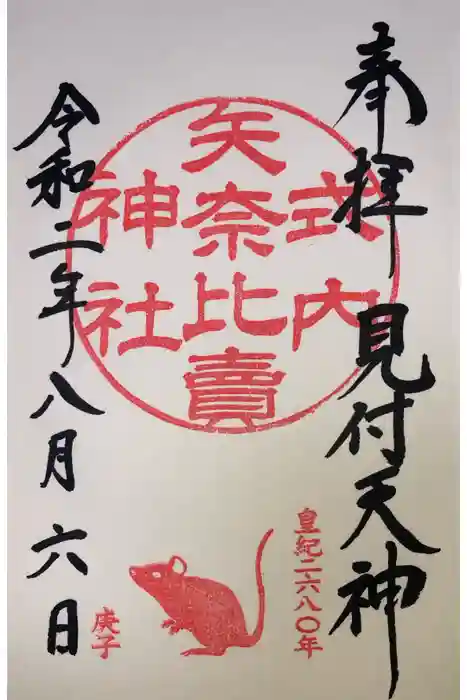 奉拝 見付天神
式内
矢奈比賣
神社
皇紀二六八〇年
令和二年八月六日
庚子